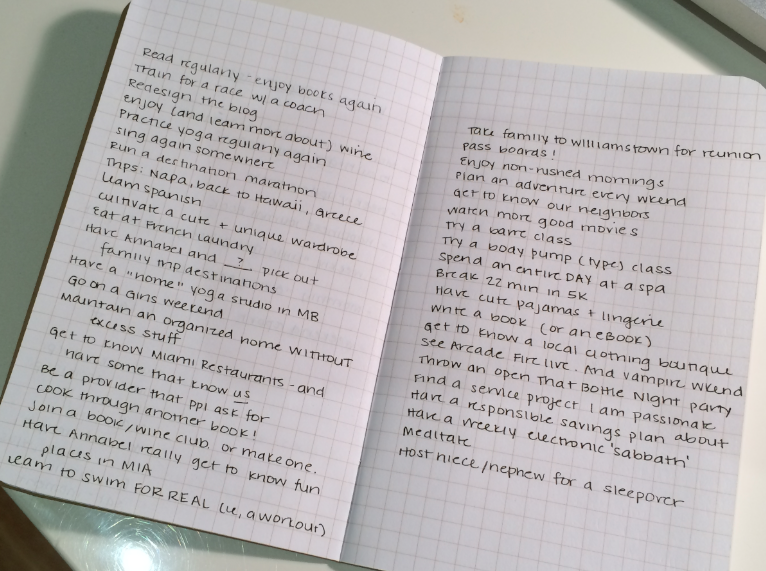 Read regularly - enjoy books again
Train for a race w/ a coach
Redesign the blog
enjoy (and learn more about) wine
Practice yoga regularly again
sing again somewhere
Run a destination marathon
Trips: Napa, back to Hawaii, Greece
Learn Spanish
cultivate a cute + unique wardrobe
Eat at French Laundry
Have Annabel and ? pick out
family trip destinations
Have a "home" yoga studio in MB
Go on a Girls weekend
Maintain an organized home WITHOUT
excess stuff
Get to know Miami Restaurants - and
have some that know us
Be a provider that ppl ask for
cook through another book!
Join a book/wine club, or make one.
Have Annabel really get to know fun
places in MIA
Learn to swim FOR REAL (ie, a workout)
Take family to Williamstown for reunion
pass boards!
Enjoy non-rushed mornings
Plan an adventure every wkend
Get to know our neighbors
watch more good movies
Try a barre class
Try a body pump (type) class
Spend an entire DAY at a spa
Break 22 min in 5K
Have cute pajamas + lingerie
write a book (or an eBOOK)
Get to know a local clothing boutique
See Arcade Fire live. And Vampire Wkend
Throw an Open That Bottle Night party
Find a service project I am passionate
Have a responsible savings plan about
Have a weekly electronic 'sabbath'
Meditate
Host niece/nephew for a sleepover